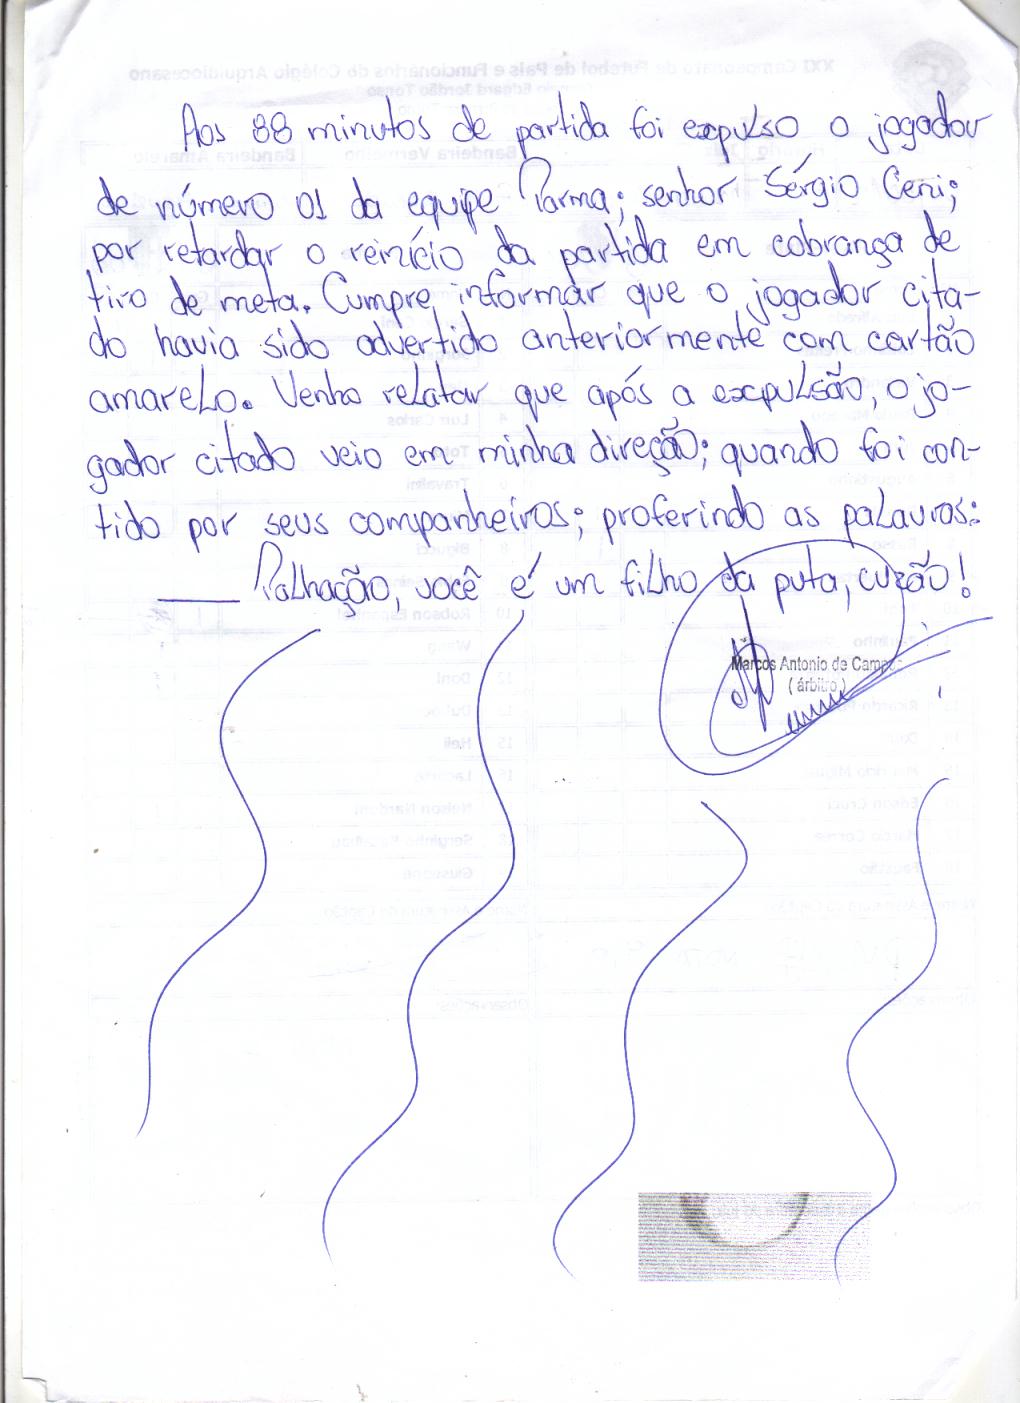 Aos 88 minutos de partida foi expulso o jogador
de número 01 da equipe Parma; senhor Sérgio Ceni;
por retardar o reinício da partida em cobrança de
tiro de meta. Cumpre informar que o jogador cita-
do havia sido advertido anteriormente com cartão
amarelo. Venho relatar que após a expulsão, o jo-
gador citado veio em minha direção; quando foi con-
tido por seus companheiros; proferindo as palavras:
____ Palhação, você é um filho da puta, cuzão!
Marcos Antonio de Campos
(árbitro)